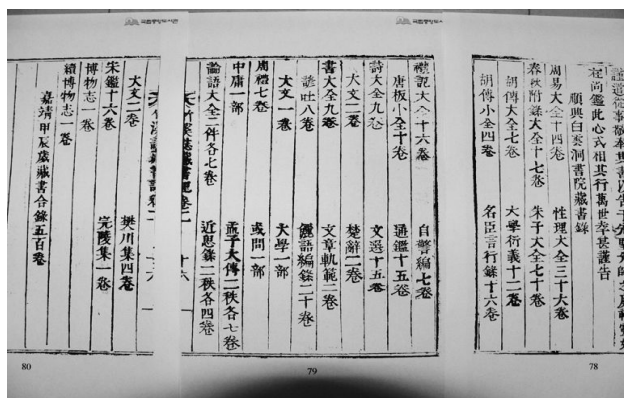 국립중앙도서관
尚鑑此心式相其行萬世幸甚謹告
順興白雲洞書院藏書錄
周易大全十四卷 性理大全三十大卷
春秋附錄大全十七卷 朱子大全七十卷
胡傳大全七卷 大學衍義十二卷
胡傳小全四卷 名臣言行錄十六卷
78
禮記大全十六卷 自警編七卷
唐板小全十卷 通鑑十五卷
詩大全九卷 文選十五卷
大文二卷 楚辭二卷
書大全九卷 文章軌範二卷
諺吐八卷 語編錄二十卷
大文一卷 大學一部
周禮七卷 或問一部
中庸一部 孟子大傳二秩各七卷
論語大全二件各七卷 近思錄二秩各四卷
79
大文二卷 樊川集四卷
宋鑑十六卷 宛陵集一卷
博物志一卷
續博物志一卷
嘉靖甲辰歲藏書合錄五百卷
80